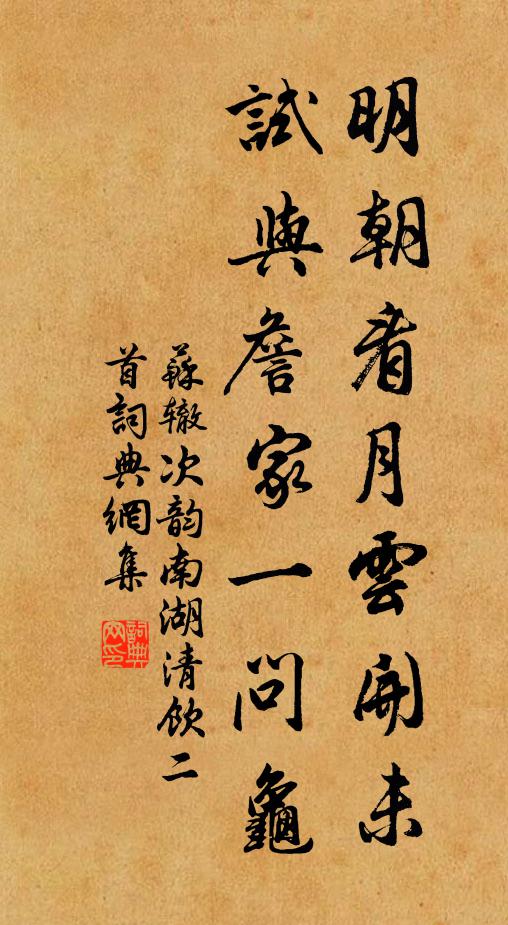 明朝看月雲開未
試與詹家一問龜
蘇轍次韵南湖清飲二
首詞典網集
詞典
网印